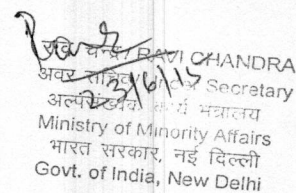 रवि चन्द्रा / RAVI CHANDRA
अवर सचिव / Under Secretary
23/6/15
अल्पसंख्यक कार्य मंत्रालय
Ministry of Minority Affairs
भारत सरकार, नई दिल्ली
Govt. of India, New Delhi